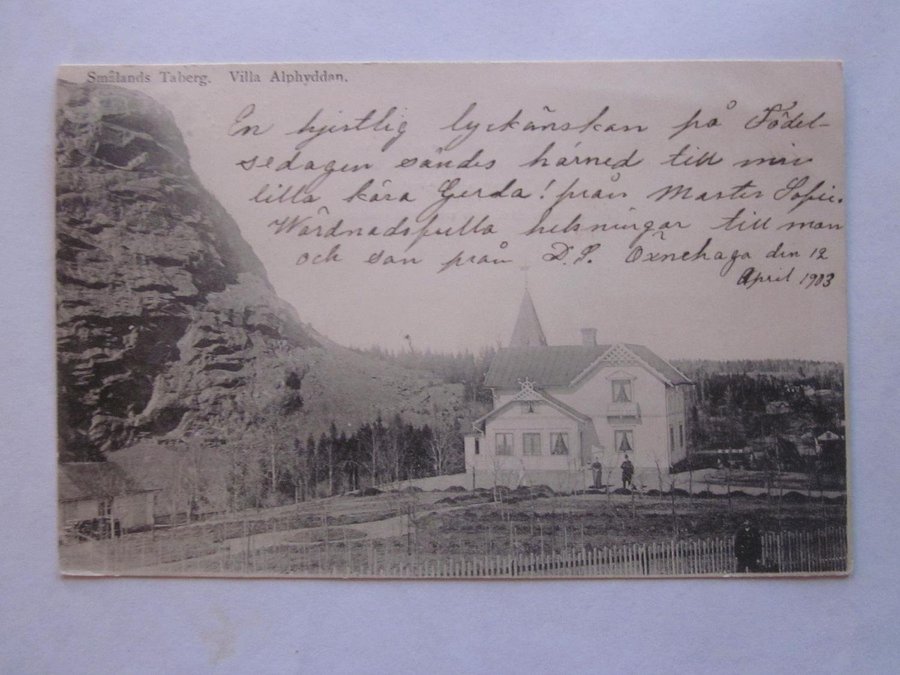 Smålands Taberg. Villa Alphyddan.
En hjertlig lyckönskan på Födel-
sedagen sändes härned till min
lilla kära Gerda! från Moster Sofie.
Wördnadsfulla helsningar till man
och son från D.S. Öxnehaga den 12
April 1903